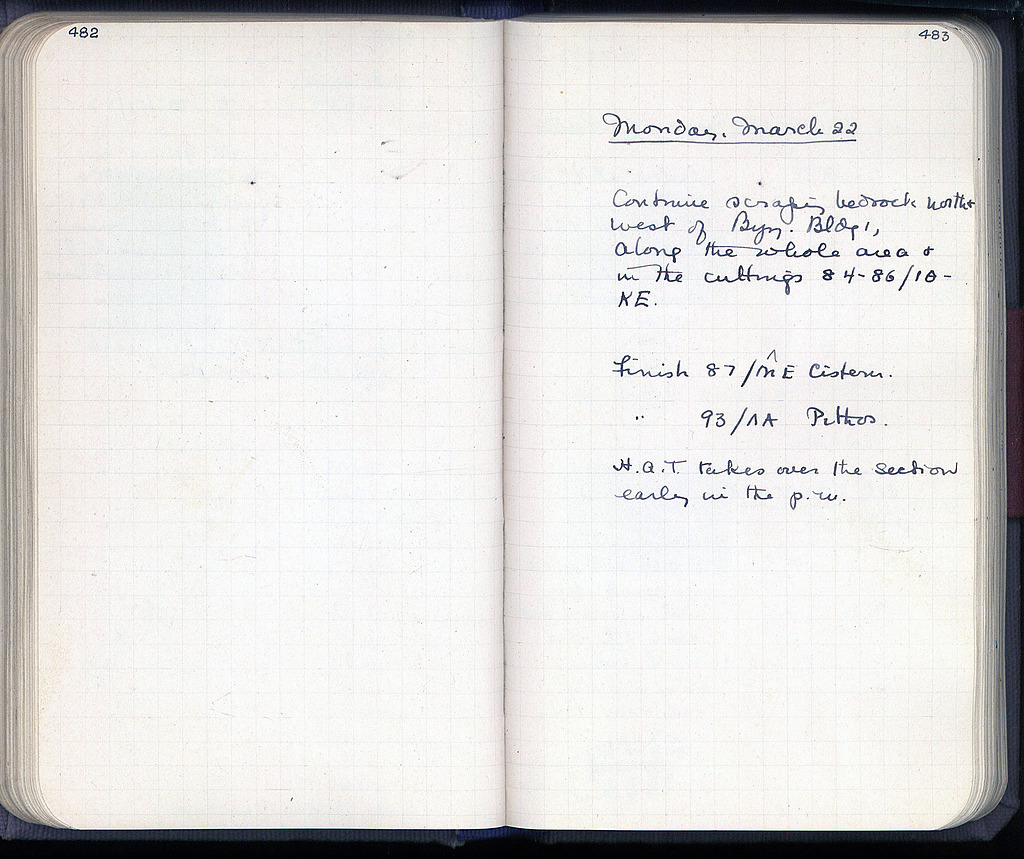 482
483
Monday, March 22
Continue scraping bedrock north +
west of Byz. Bldg 1,
along the whole area +
in the cuttings 84-86/ΙΘ-
ΚΕ.
Finish 87/ΛΕ Cistern.
" 93/ΛΑ Pithos.
H.A.T. takes over the section
early in the p.m.